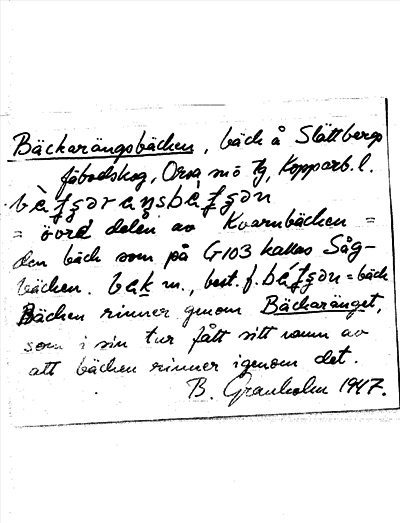 Bäckarängsbäcken, bäck å Slättbergs
fäbodskog, Orsa sn ö tg, Kopparb. l.
= övre delen av Kvarnbäcken =
den bäck som på G103 kallas Såg-
bäcken. bak m., best. f. = bäck
Bäcken rinner genom Bäckaränget,
som i sin tur fått sitt namn av
att bäcken rinner igenom det.
B. Granholm 1947.